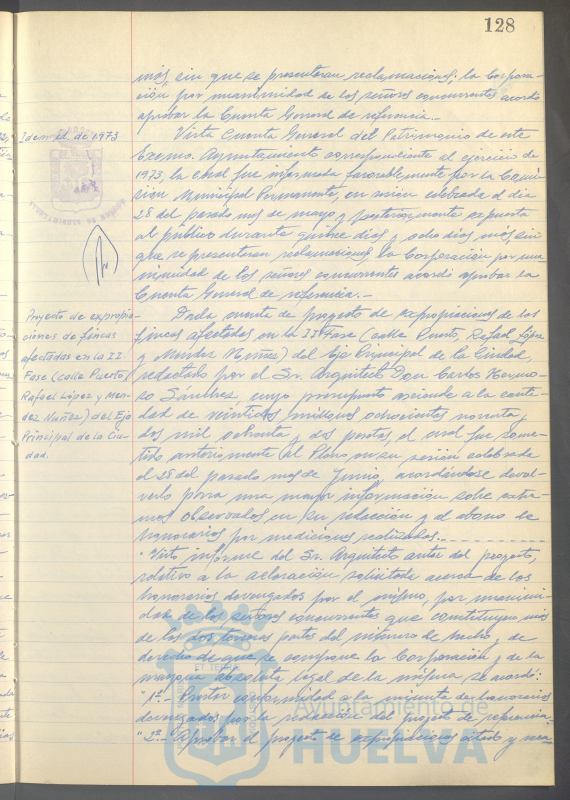 128
más, sin que se presentaran reclamaciones, la Corpora-
ción por unanimidad de los señores concurrentes acordó
aprobar la Cuenta General de referencia.-
Idem id. de 1973
Vista Cuenta General del Patrimonio de este
Excmo. Ayuntamiento correspondiente al ejercicio de
1973, la cual fue informada favorablemente por la Comi-
sión Municipal Permanente, en sesión celebrada el día
28 del pasado mes de mayo y posteriormente expuesta
al público durante quince días y ocho días más sin
que se presentaran reclamaciones la Corporación por una-
nimidad de los señores concurrentes acordó aprobar la
Cuenta General de referencia.-
Proyecto de expropia-
ciones de fincas
afectadas en la II
Fase (calle Puerto,
Rafael López y Men-
dez Nuñez) del Eje
Principal de la Ciu-
dad.
Dada cuenta de proyecto de expropiaciones de las
fincas afectadas en la II Fase (calle Puerto, Rafael López
y Mendez Nuñez) del Eje Principal de la Ciudad,
redactado por el Sr. Arquitecto Don Carlos Hermo-
so Sanchez, cuyo presupuesto asciende a la canti-
dad de veintidos millones ochocientas noventa y
dos mil ochenta y dos pesetas, el cual fue some-
tido anteriormente al Pleno en su sesión celebrada
el 28 del pasado mes de Junio, acordándose devol-
verlo para una mayor información sobre
observados en su redacción y el abono de
honorarios por mediciones realizadas.-
"Visto informe del Sr. Arquitecto autor del proyecto,
relativo a la aclaración solicitada acerca de los
honorarios devengados por el mismo, por unanimi-
dad de los señores concurrentes que constituyen más
de las dos terceras partes del número de hecho y de
derecho de que se compone la Corporación y de la
mayoría absoluta legal de la misma se acordó:
"1º.- Prestar conformidad a la minuta de honorarios
devengados por la redacción del proyecto de referencia.
"2º.- Aprobar el proyecto de expropiaciones citado y
Ayuntamiento de
HUELVA